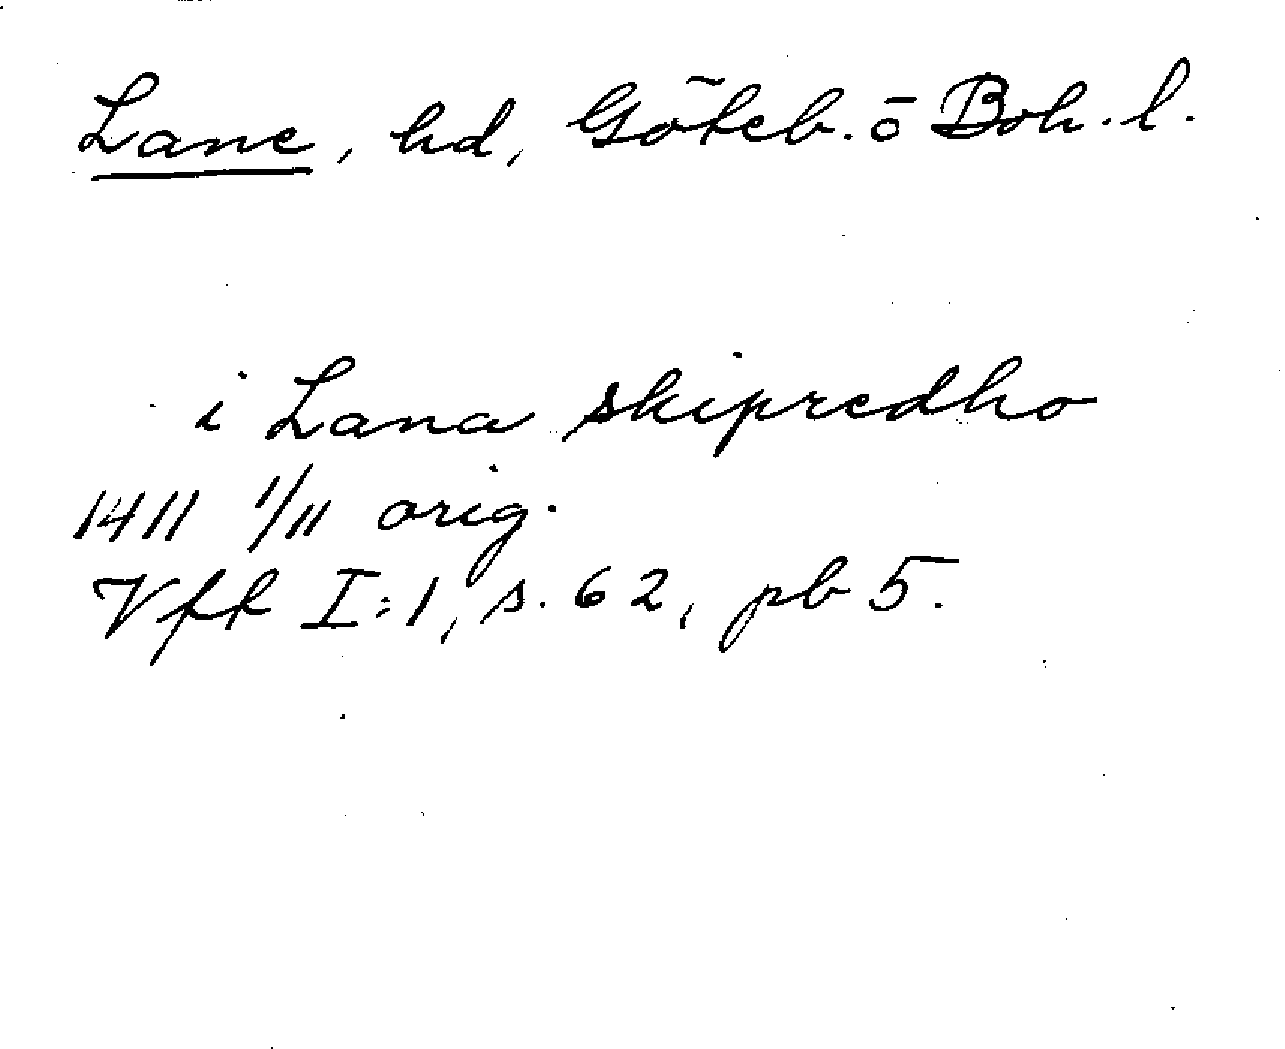 Lane, hd, Göteb. o Boh. l.
i Lana skipredho
1411 1/11 orig.
Vff I:1, s. 62, pb 5.